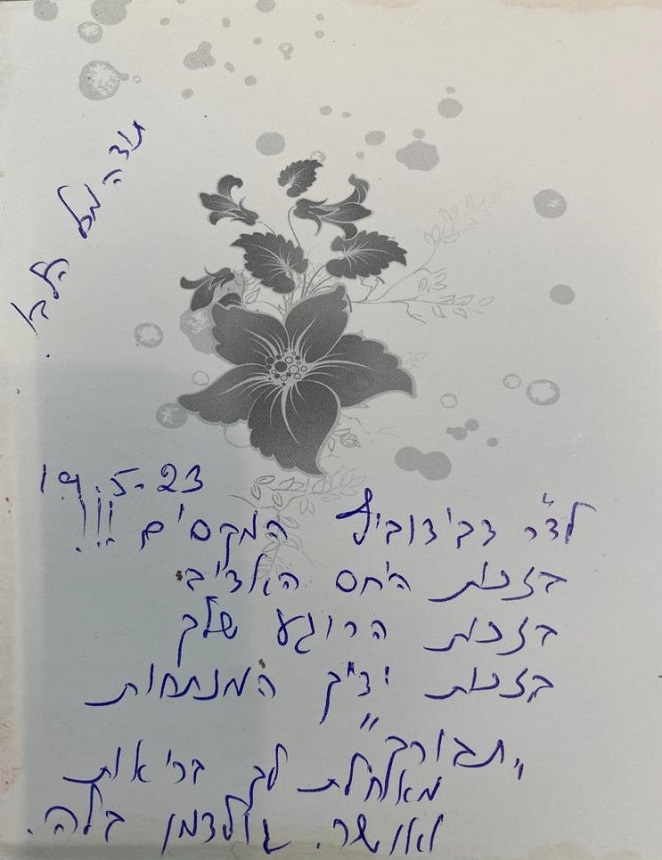 תודה מכל הלב!
19.5-23
לד"ר דבידוביץ המקסים!!!
בזכות היחס האדיב
בזכות הרוגע שלך
בזכות ידיך המנתחות
"תבורך"
מאחלת לך בריאות
ואושר. גולדמן בלה.